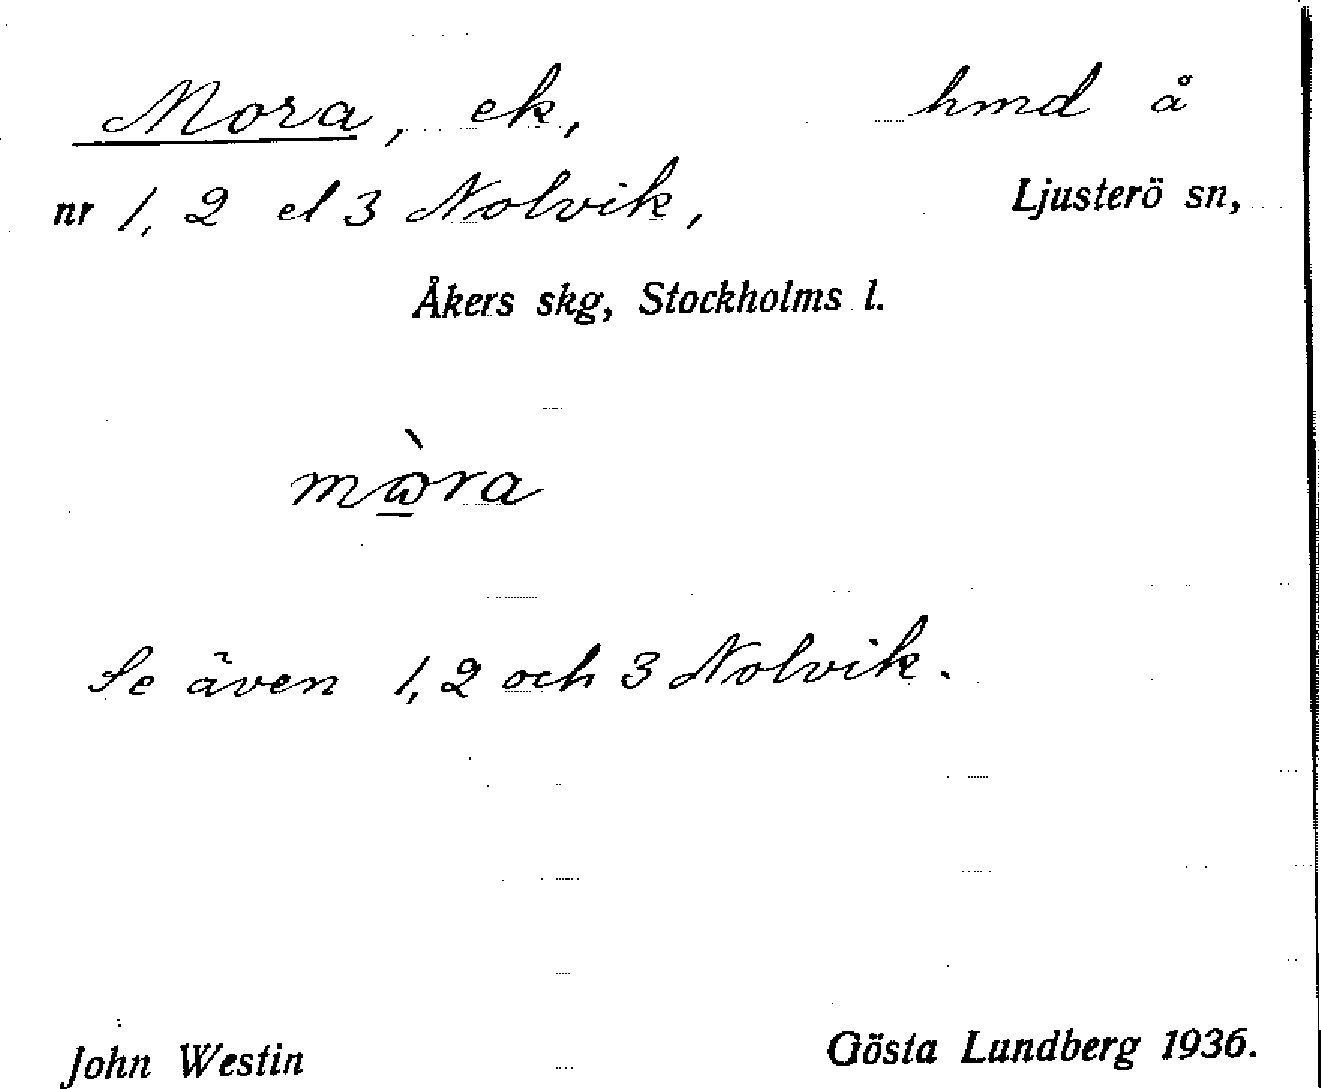 Mora, ek, hmd å
nr 1, 2 el 3 Nolvik, Ljusterö sn,
Åkers skg, Stockholms l.
mɷ̀ra
Se även 1, 2 och 3 Nolvik.
John Westin Gösta Lundberg 1936.